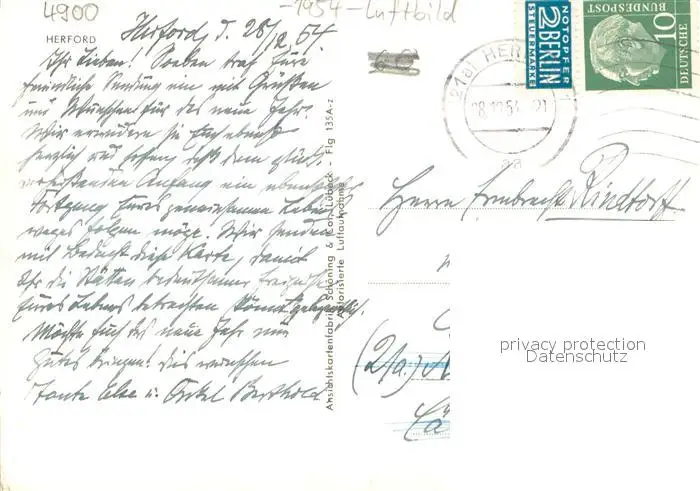 4900
-1954-Luftbild
HERFORD
Herford, d. 28/12.54
Ihr Lieben! Soeben traf Eure
freundliche Sendung ein mit Grüßen
und Wünschen für das neue Jahr.
Wir erwidern sie Euch ebenso
herzlich und hoffen, daß dem glückl.
Anfang ein
Fortgang Eures gemeinsamen Lebens-
weges folgen möge. Wir senden
mit Bedacht diese Karte, damit
Ihr die Stätten bedeutsamer
Eures Lebens betrachten könnt
Möchte Euch das neue Jahr nur
Gutes bringen! Dies wünschen
Tante Else u. Onkel Berthold
Ansichtskartenfabrik Schöning & Co., Lübeck - Flg 135A-z
Kolorisierte Luftaufnahme
NOTOPFER
2 BERLIN
STEUERMARKE
DEUTSCHE
BUNDESPOST
10
(21a) HERFORD
28.12.54-21
Herrn Rindtorff
(21a)
privacy protection
Datenschutz